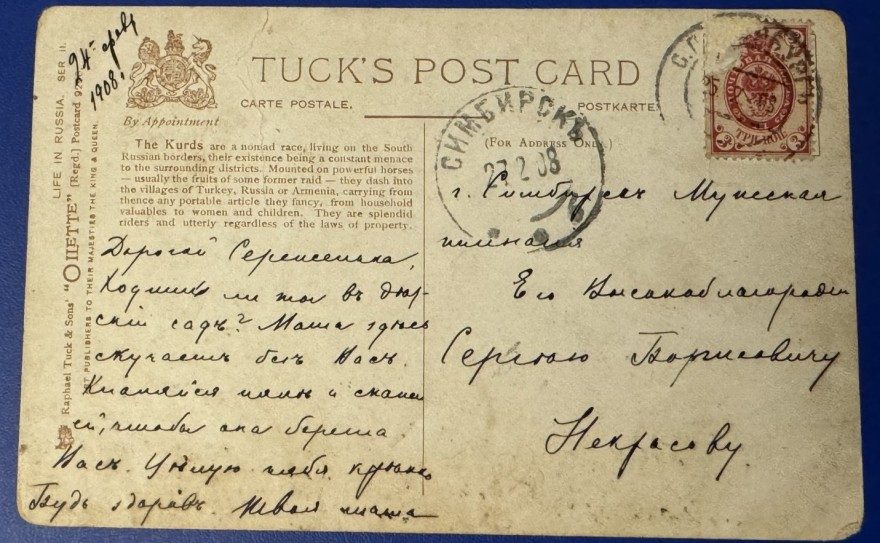 24го февр.
1908 г.
LIFE IN RUSSIA. SER II.
Raphael Tuck & Sons' "OILETTE" [Regd.] Postcard
ART PUBLISHERS TO THEIR MAJESTIES THE KING & QUEEN.
By Appointment
TUCK'S POST CARD
CARTE POSTALE. POSTKARTE.
(For Address Only.)
The Kurds are a nomad race, living on the South
Russian borders, their existence being a constant menace
to the surrounding districts. Mounted on powerful horses
— usually the fruits of some former raid — they dash into
the villages of Turkey, Russia or Armenia, carrying from
thence any portable article they fancy, from household
valuables to women and children. They are splendid
riders and utterly regardless of the laws of property.
Дорогой Сереженька,
Ходишь ли ты въ
садъ? Маша здесь
скучаетъ безъ Васъ.
Кланяйся няне и скажи
ей, чтобы она берегла
Васъ. Целую тебя крепко
Будь здоровъ. Твоя мама
СИМБИРСКЪ
27 2 08
ПОЧТОВАЯ МАРКА
ТРИ КОП.
3 3
г. Симбирскъ Мужская
гимназия
Его Высокоблагородию
Сергею Борисовичу
Некрасову.